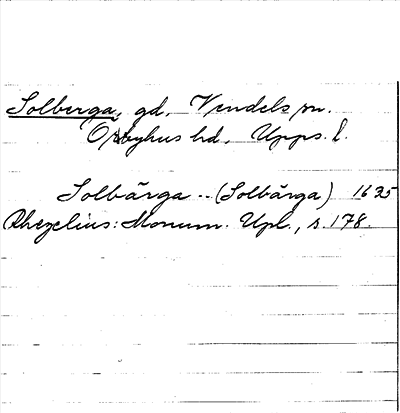 Solberga, gd, Vendels sn.
Örbyhus hd, Upps. l.
Solbärga .. (Solbärga) 1635
Rhezelius: Monum. Upl., s. 178.